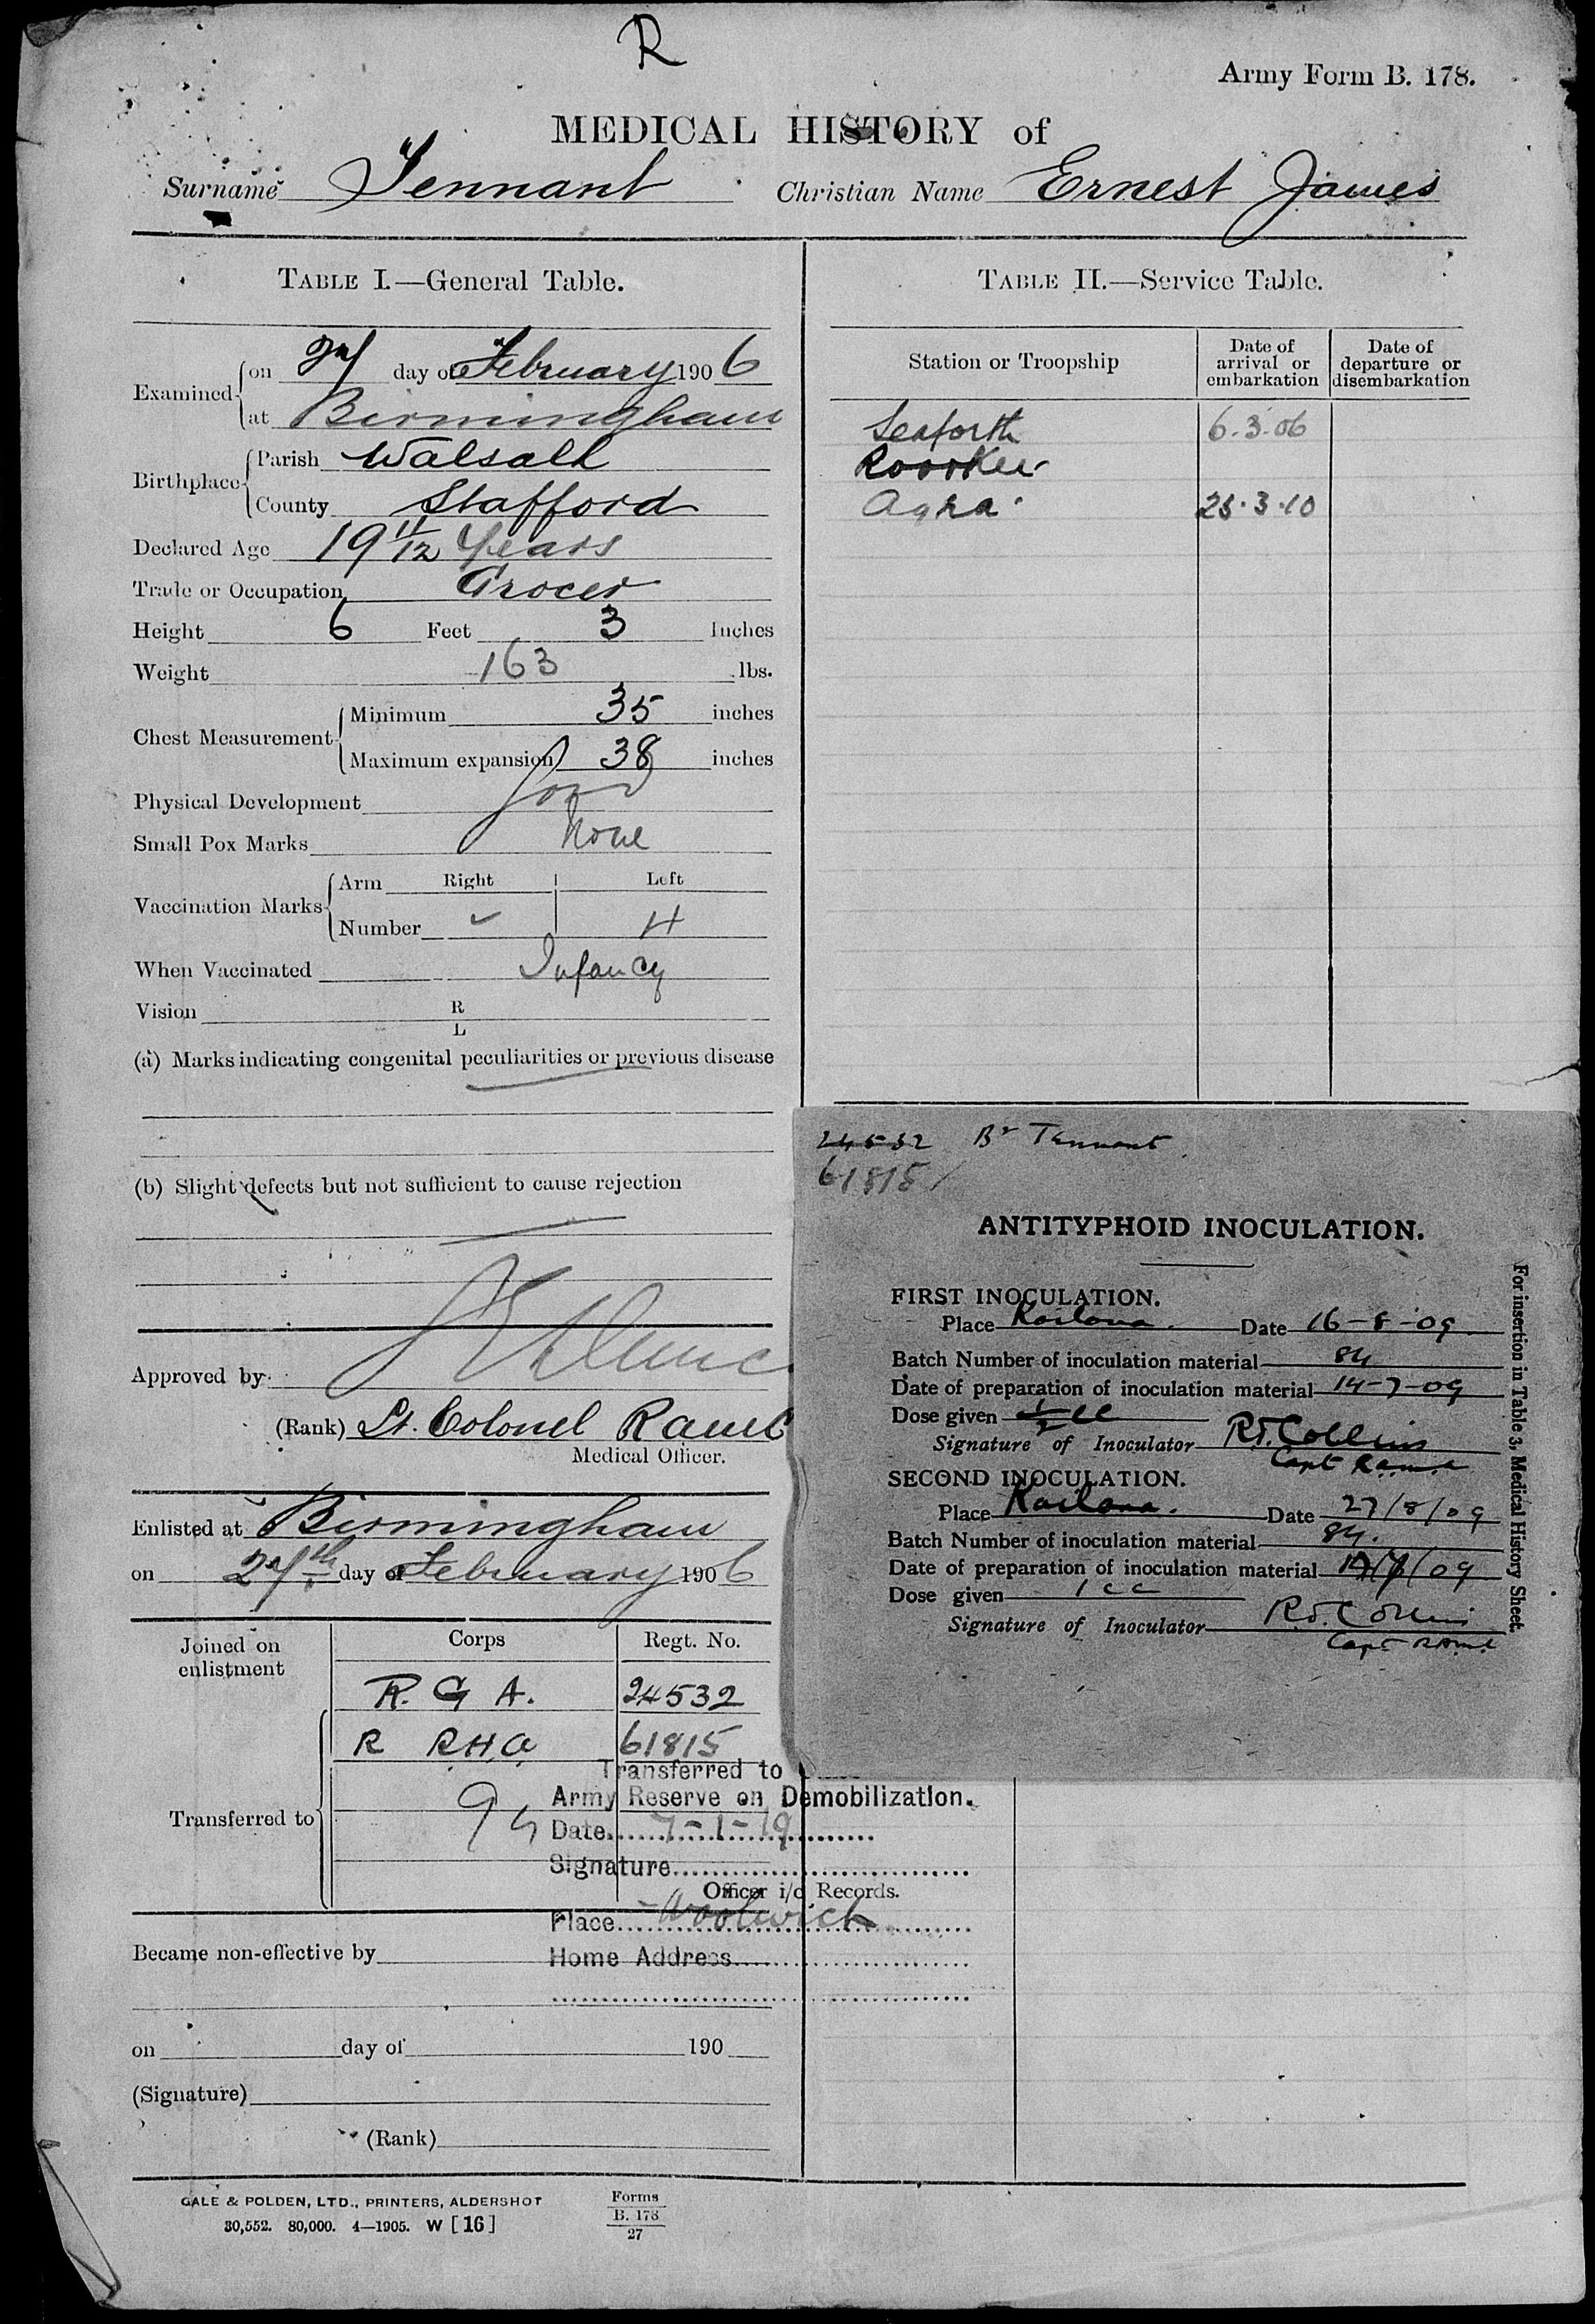 R
Army Form B. 178.
MEDICAL HISTORY of
Surname Tennant Christian Name Ernest James
TABLE I.—General Table.
Examined on 27 day of February 1906
at Birmingham
Birthplace Parish Walsall
County Stafford
Declared Age 19 11/12 Years
Trade or Occupation Grocer
Height 6 Feet 3 Inches
Weight 163 lbs.
Chest Measurement Minimum 35 inches
Maximum expansion 38 inches
Physical Development Good
Small Pox Marks None
Vaccination Marks Arm Right Left
Number 4
When Vaccinated Infancy
Vision R
L
(a) Marks indicating congenital peculiarities or previous disease
(b) Slight defects but not sufficient to cause rejection
Approved by
(Rank) Lt. Colonel RAMC
Medical Officer.
Enlisted at Birmingham
on 27th day of February 1906
Joined on enlistment Corps Regt. No.
R. G A. 24532
Transferred to R RHA 61815
Became non-effective by
on day of 190
(Signature)
(Rank)
GALE & POLDEN, LTD., PRINTERS, ALDERSHOT
30,552. 80,000. 4—1905. W [16]
Forms
B. 178
27
TABLE II.—Service Table.
Station or Troopship Date of arrival or embarkation Date of departure or disembarkation
Seaforth 6.3.06
Roorkee
Agra 23.3.10
24532 Br Tennant
61815
ANTITYPHOID INOCULATION.
FIRST INOCULATION.
Place Kailana. Date 16-8-09
Batch Number of inoculation material 84
Date of preparation of inoculation material 14-7-09
Dose given 1/2 cc
Signature of Inoculator R.T. Collins
Capt RAMC
SECOND INOCULATION.
Place Kailana. Date 27/8/09
Batch Number of inoculation material 84.
Date of preparation of inoculation material 14/7/09
Dose given 1 cc
Signature of Inoculator R.T. Collins
Capt RAMC
For insertion in Table 3, Medical History Sheet.
Transferred to
Army Reserve on Demobilization.
Date 7-1-19
Signature
Officer i/c Records.
Place Woolwich
Home Address